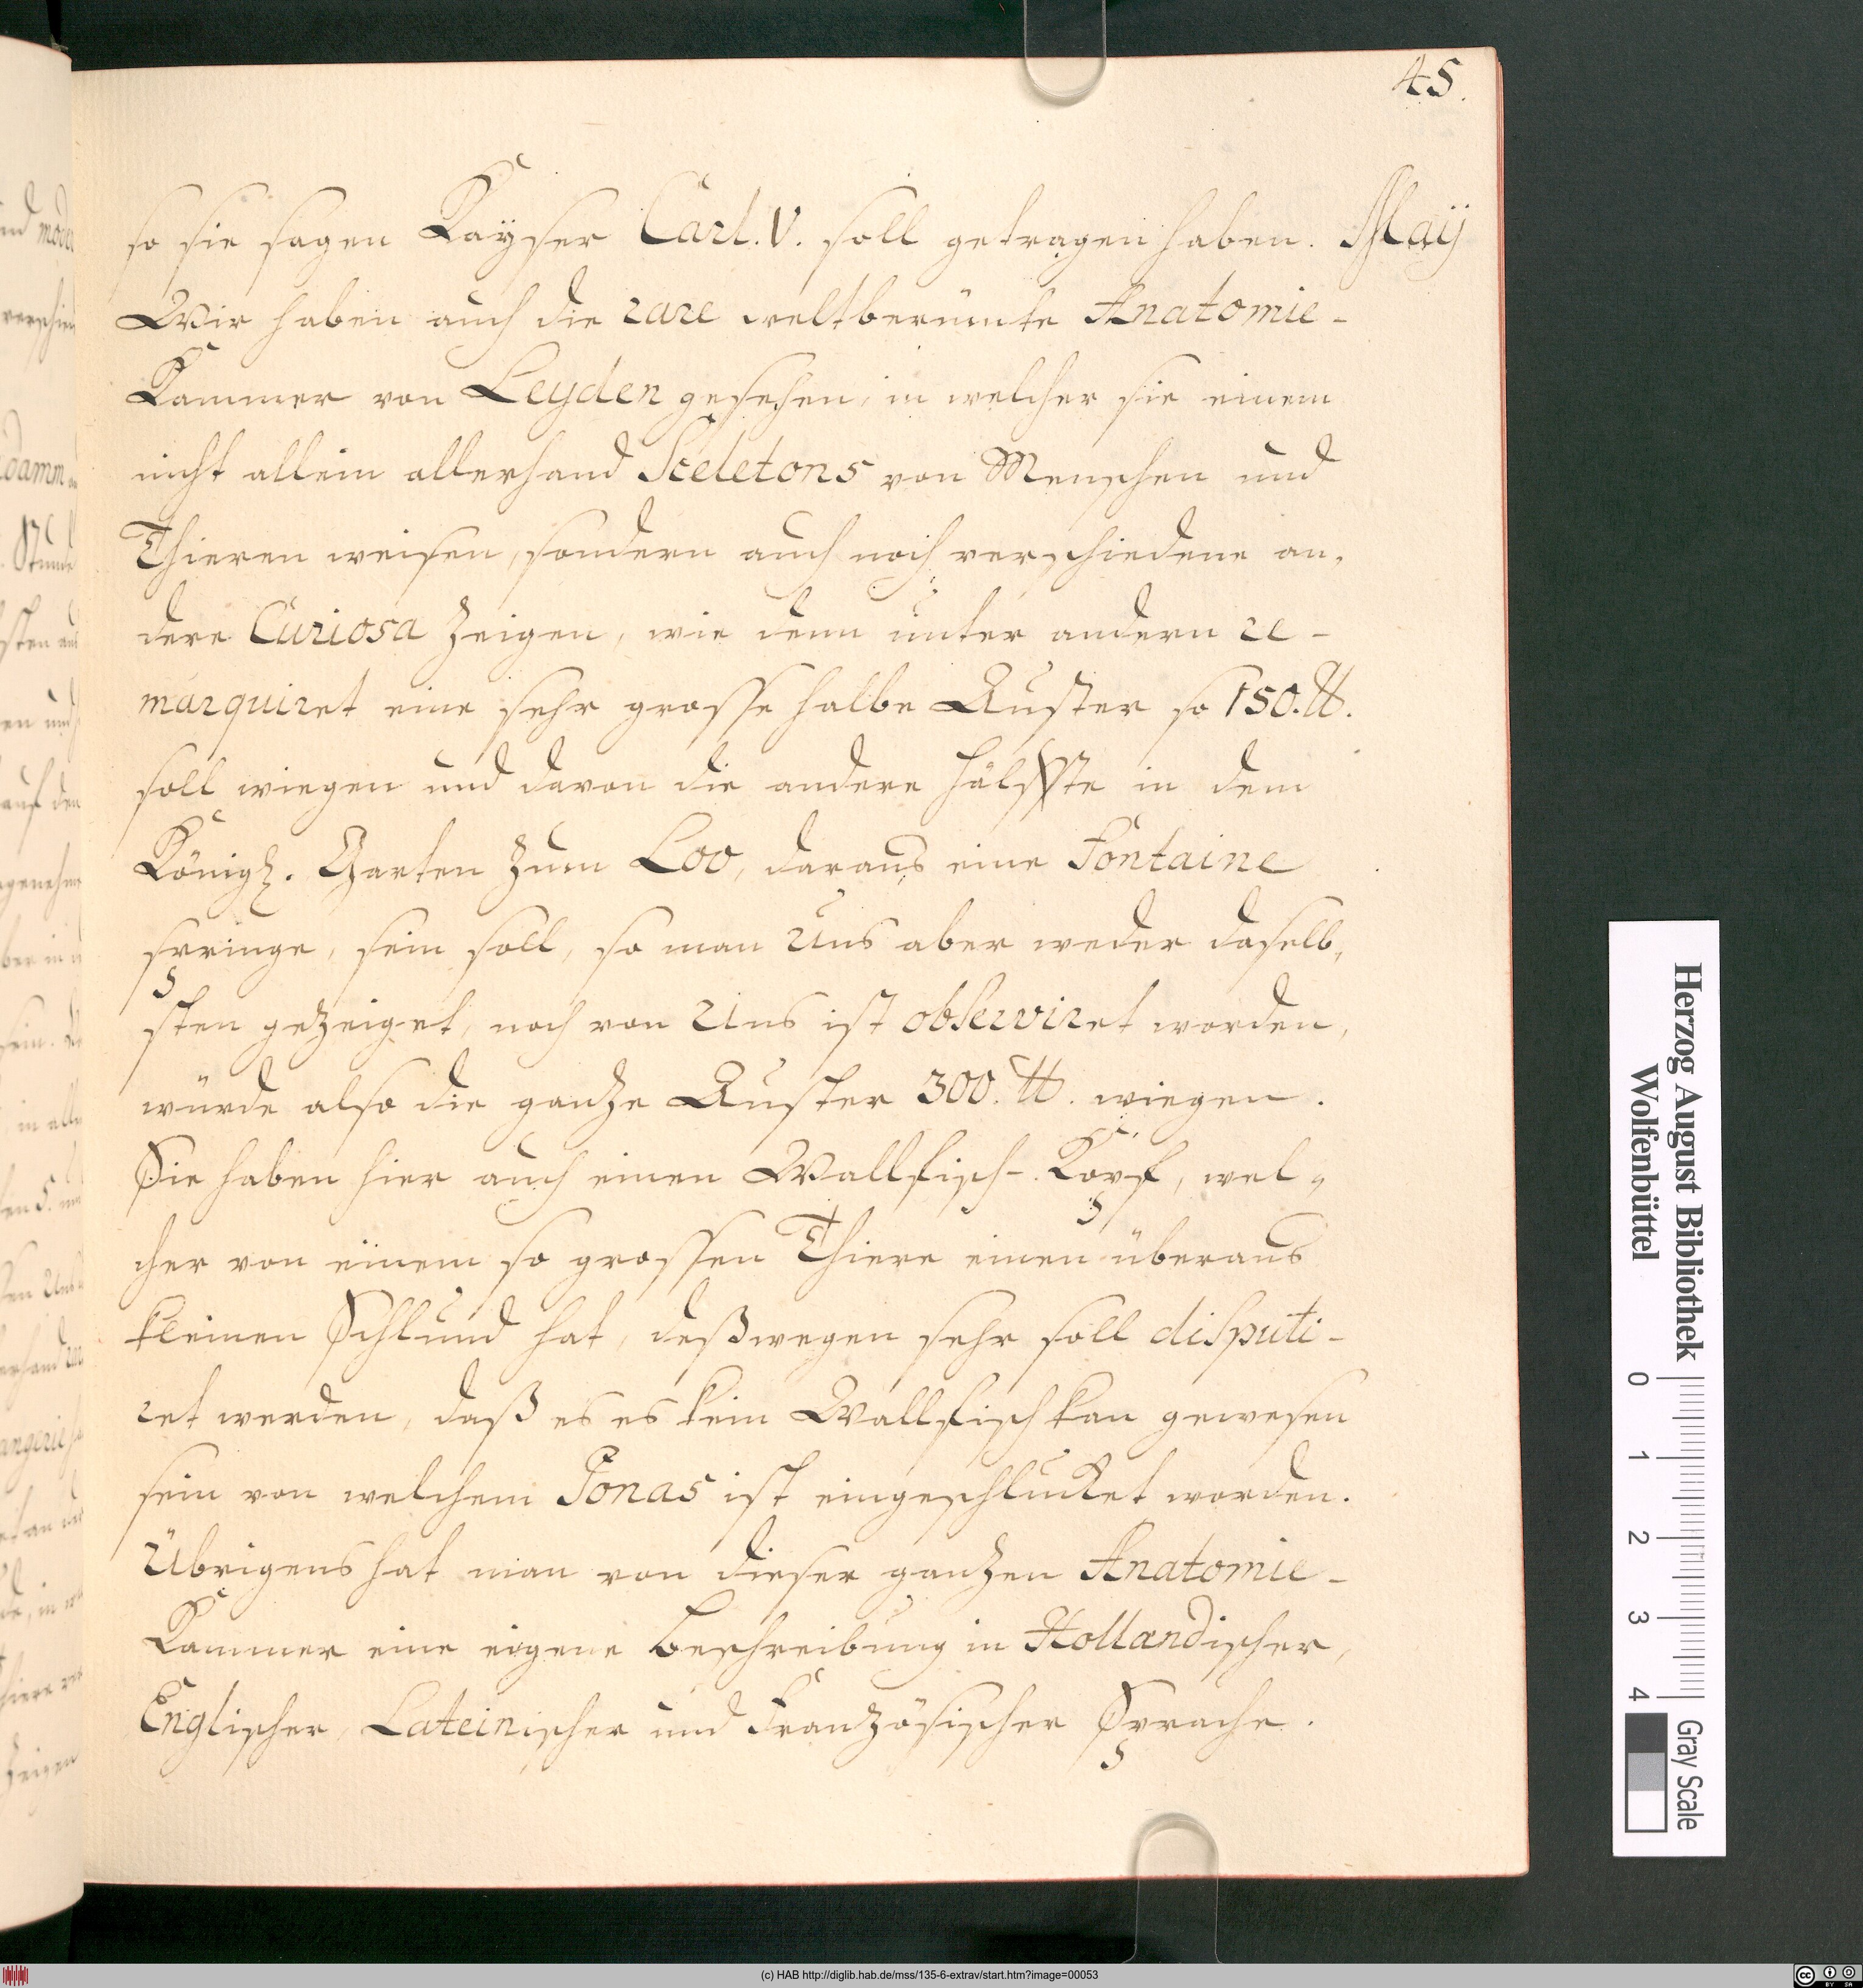 45.
so sie sagen Kaÿser Carl. V. soll getragen haben. Maÿ
Wir haben auch die rare weltberümte Anatomie-
Kammer von Leyden gesehen, in welcher sie einem
nicht allein allerhand Sceletons von Menschen und
Thieren weisen, sondern auch noch verschiedene an,
dere Curiosa zeigen, wie denn unter andern re-
marquiret eine sehr grosse halbe Auster so 150. ℔.
soll wiegen und davon die andere Hälffte in dem
Königl. Garten zum Loo, daraus eine Fontaine
springe, sein soll, so man Uns aber weder daselb,
sten gezeiget, noch von Uns ist observiret worden,
würde also die gantze Auster 300. ℔. wiegen.
Sie haben hier auch einen Wallfisch-Kopf, wel,
cher von einem so grossen Thiere einen überaus
kleinen Schlund hat, deßwegen sehr soll disputi-
ret werden, daß es es kein Wallfisch kan gewesen
sein von welchem Jonas ist eingeschlucket worden.
Übrigens hat man von dieser gantzen Anatomie-
Kammer eine eigene Beschreibung in Hollandischer,
Englischer, Lateinischer und Französischer Sprache.
Herzog August Bibliothek
Wolfenbüttel
0 1 2 3 4
Gray Scale
(c) HAB http://diglib.hab.de/mss/135-6-extrav/start.htm?image=00053